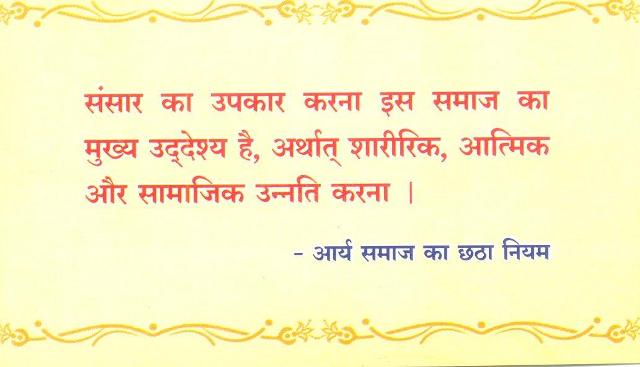 संसार का उपकार करना इस समाज का
मुख्य उद्‌देश्य है, अर्थात् शारीरिक, आत्मिक
और सामाजिक उन्नति करना |
- आर्य समाज का छठा नियम